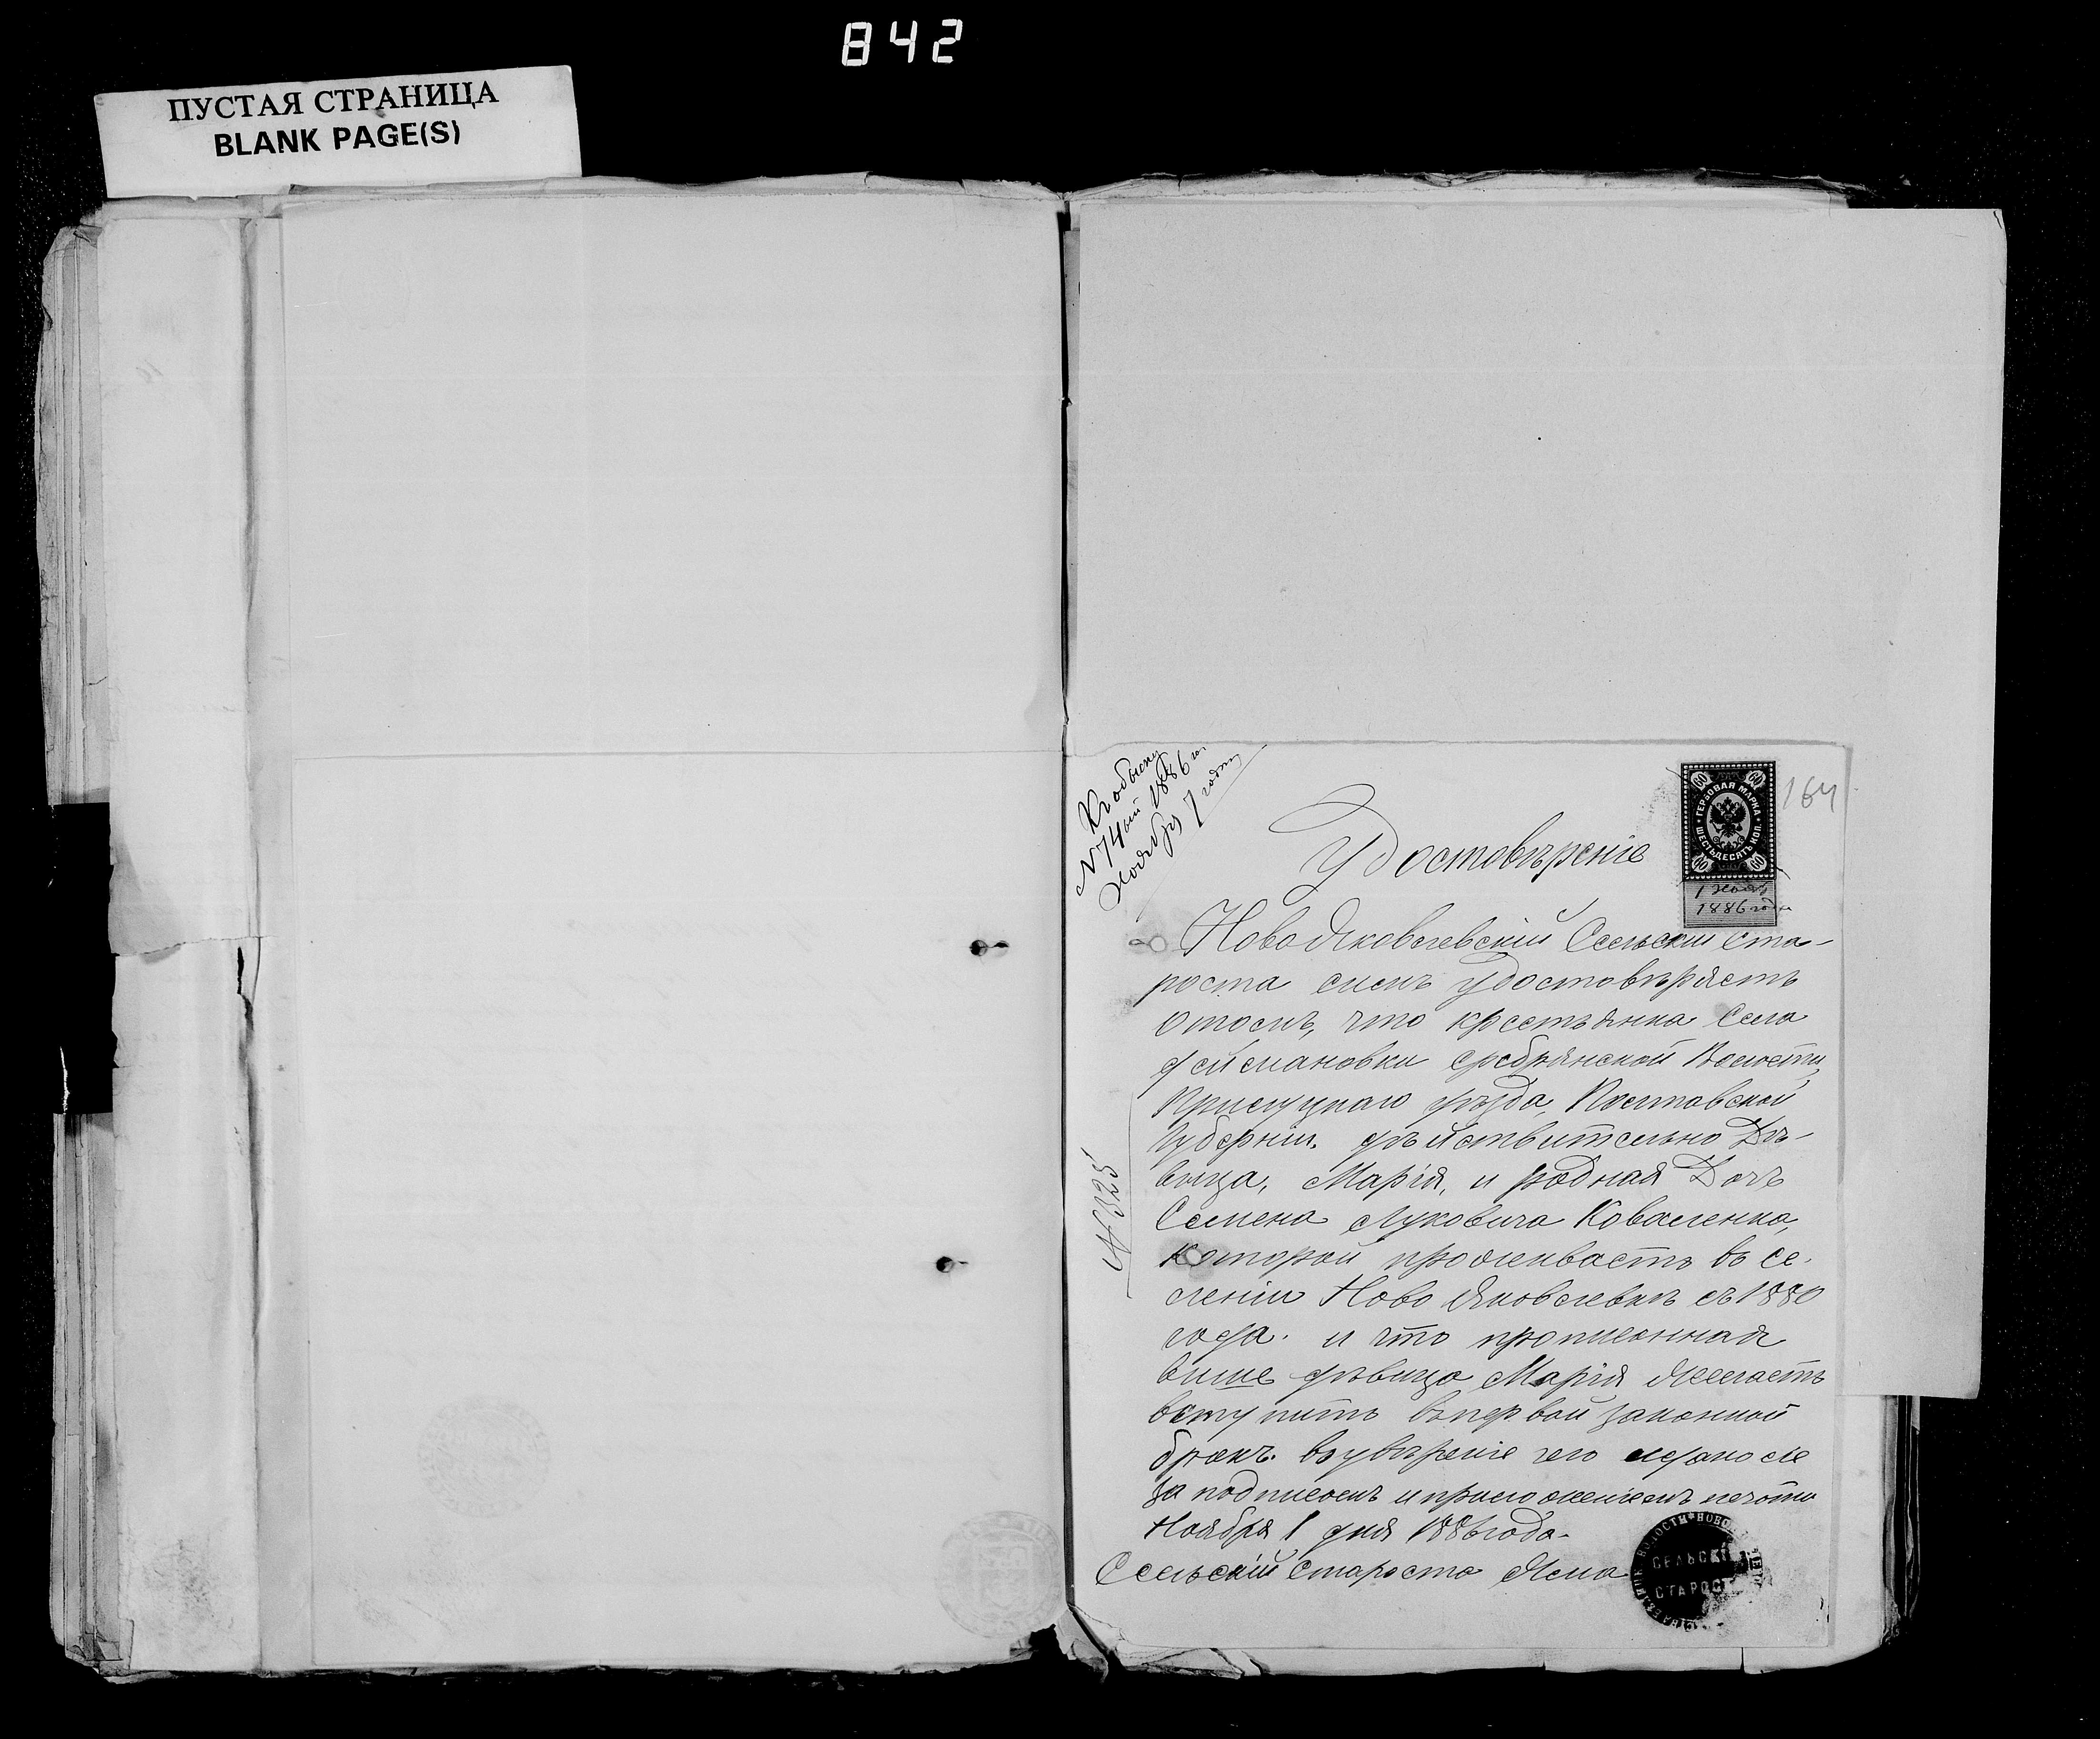 842
ПУСТАЯ СТРАНИЦА
BLANK PAGE(S)
Къ обыску
№ 74ый 1886 го
Ноября 7 годну
164
60 60
ГЕРБОВАЯ МАРКА
ШЕСТЬДЕСЯТЬ КОП.
60 60
1 Нояб
1886 года
Удостовѣреніе
Ново Яковлевскій Сельский Ста-
роста симъ удостовѣряетъ
отомъ, что крестьянка Села
Сребрянской Волости,
Прилуцкаго уѣзда, Полтавской
Губерніи, дѣйствительно Дѣ-
вица, Марія, и родная Дочь
Семена Луковича Коваленка,
которой проживаетъ въ се-
леніи Ново Яковлевкѣ съ 1880
года. и что прописанная
више дѣвица Марія Желаетъ
вступить въпервой законной
бракъ. въ увѣреніе чего
за подписомъ и приложеніемъ печати
Ноября 1 дня 1886 года.
Сельскій Староста
№ 325
СЕЛЬСКІЙ
СТАРОСТ